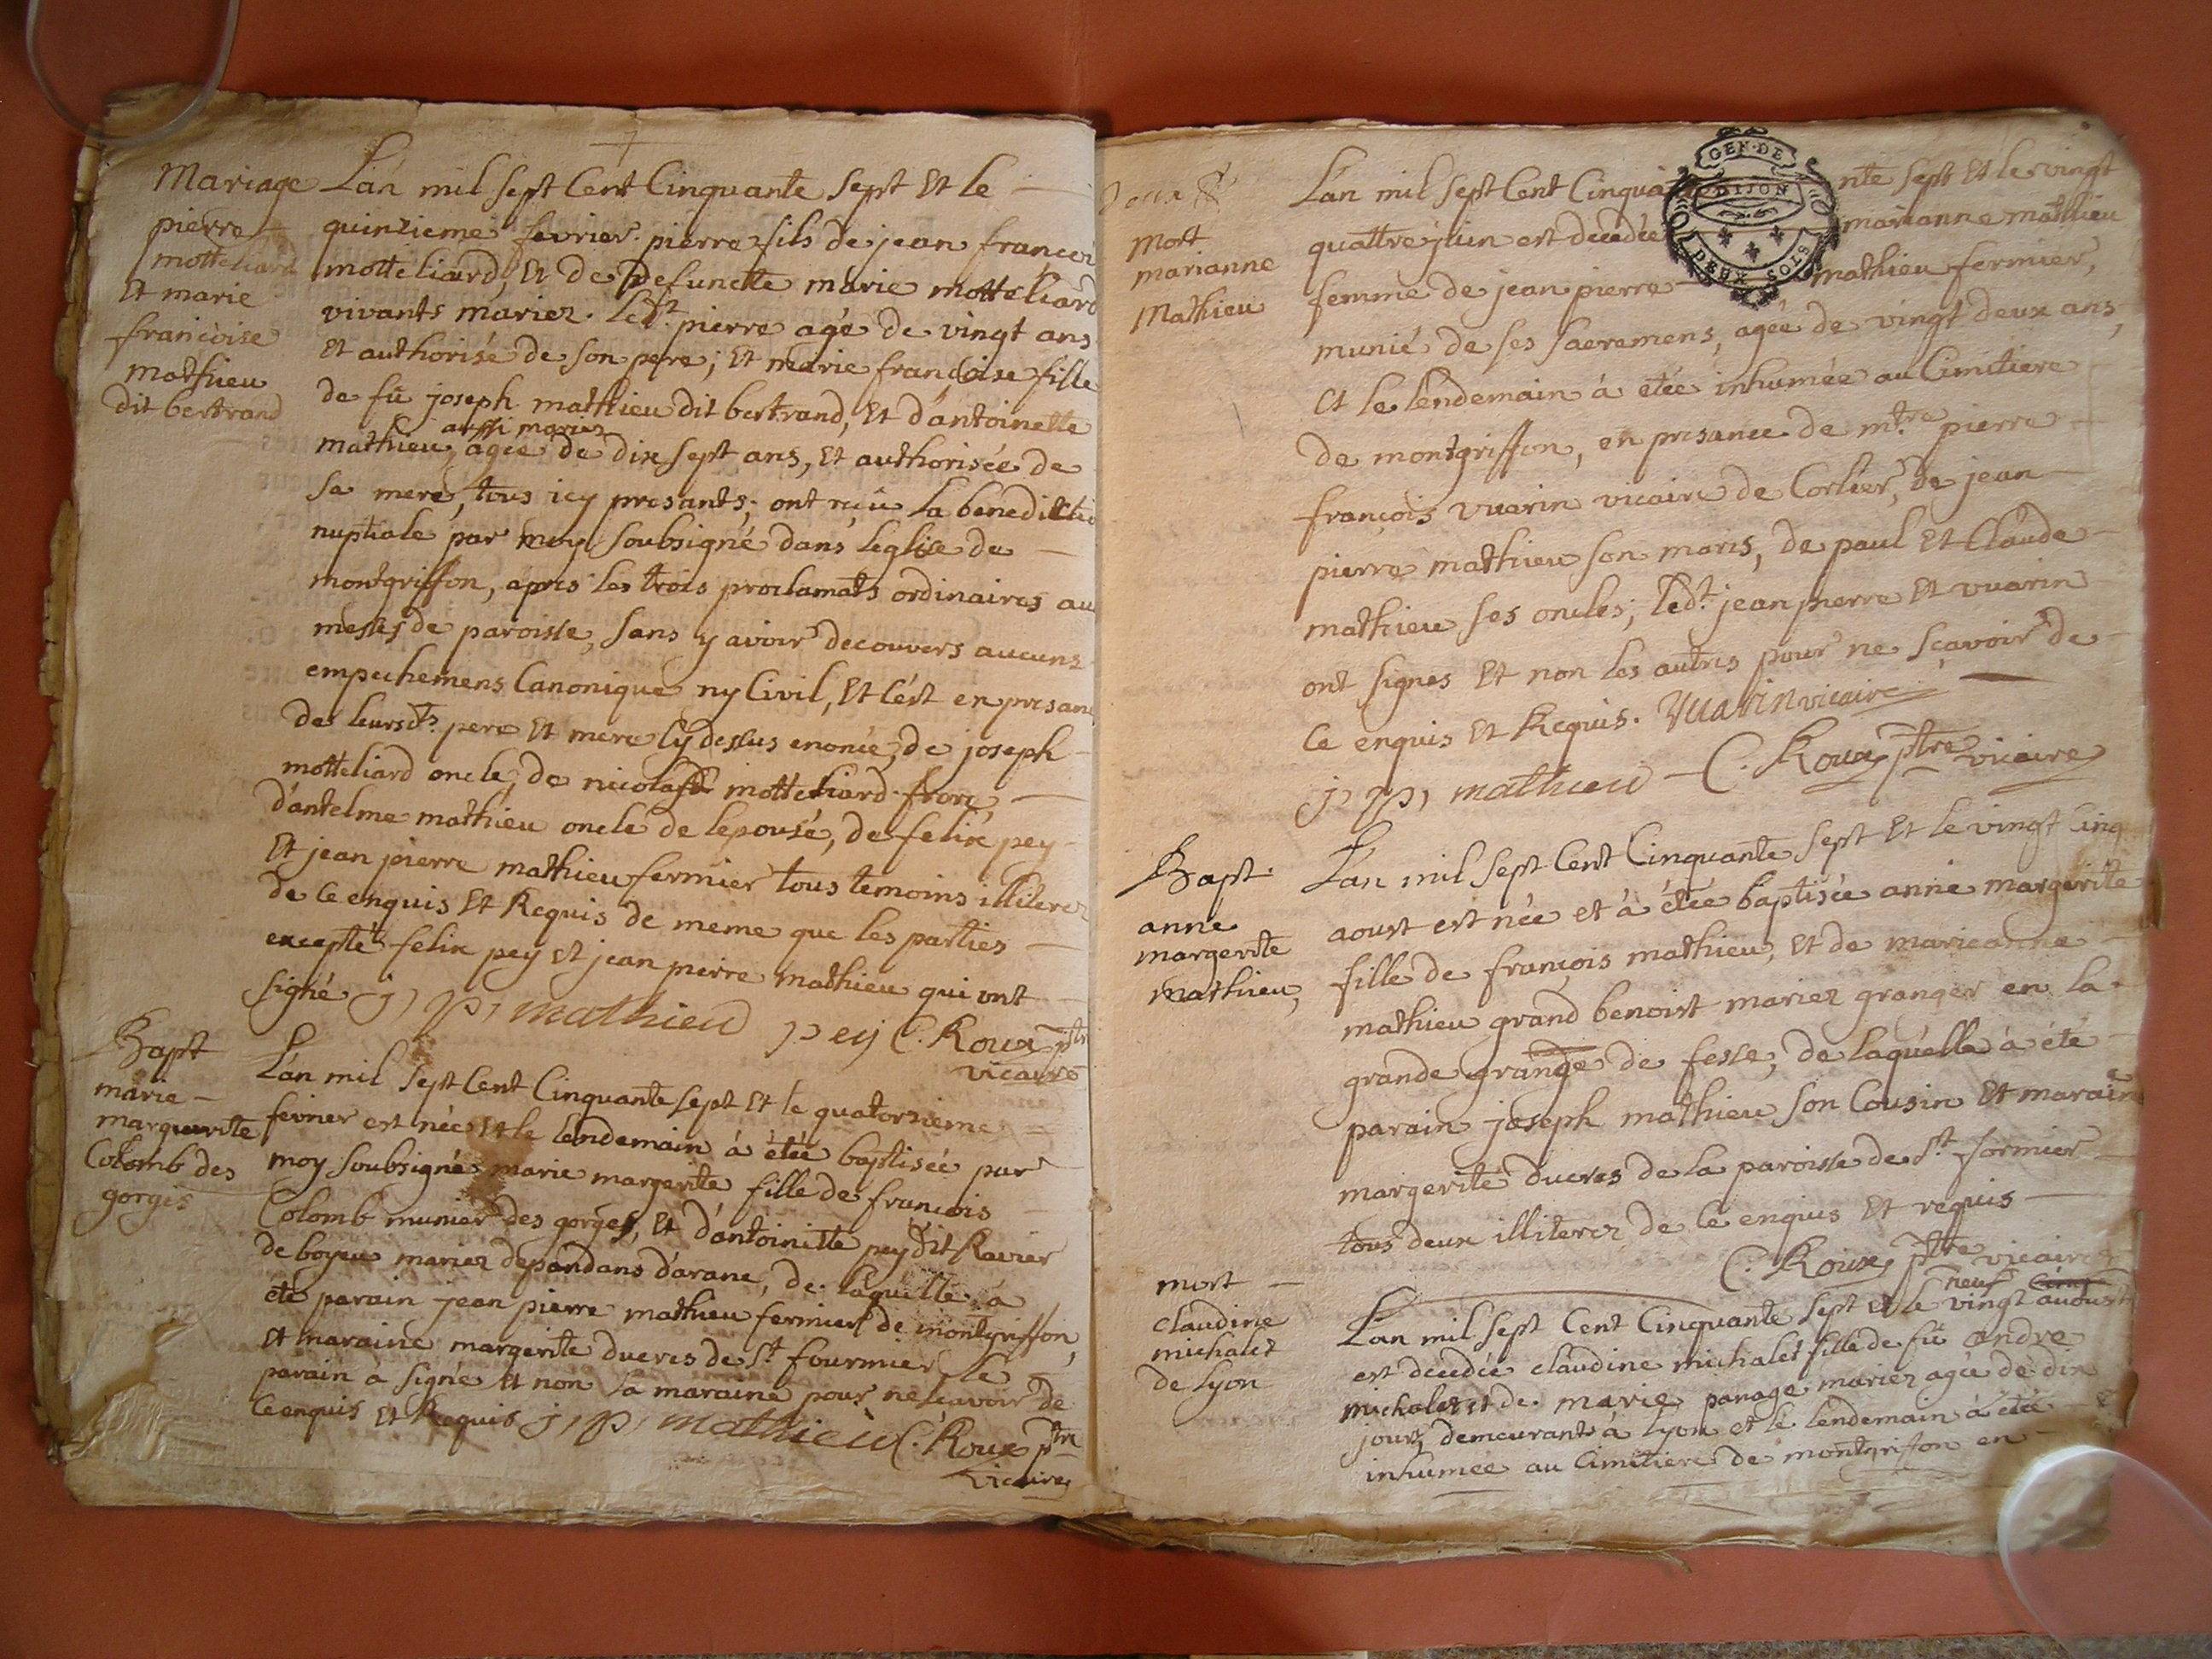 Mariage
pierre
motteliard
Et marie
francoise
mathieu
dit bertrand
L'an mil sept Cent Cinquante sept Et le
quinzieme fevrier pierre fils de jean francois
motteliard, Et de Defuncte marie motteliard
vivants mariez. led.t pierre agé de vingt ans
Et authorisé de son pere; Et marie françoise fille
de fû joseph mathieu dit bertrand, Et d'antoinette
aussi mariez
mathieu, agée de dix sept ans, Et authorisée de
sa mere, tous icy presants; ont reçu la benedictio
nuptiale par moy soubsigné dans leglise de
montgriffon, apres les trois proclamats ordinaires au
messes de paroisse, sans y avoir decouvers aucuns
empechemens Canonique ny Civil, Et C'est en presan
de leursd.ts pere Et mere Cy dessus enoncé, de joseph
motteliard oncle, de nicolas motteliard frere
d'antelme mathieu oncle de lepouse, de felix pey
Et jean pierre mathieu fermier tous temoins illiterez
de Ce enquis Et Requis de meme que les parties
excepté felix pey et jean pierre mathieu qui ont
signé j, p, mathieu pey C. Roux ptre
vicaire
Bapt
marie
marguerite
Colomb des
gorges
L'an mil sept Cent Cinquante sept Et le quatorzieme
fevrier est née Et le lendemain à étée baptisée par
moy soubsigné marie margerite fille de francois
Colomb munier des gorges, Et d'antoinette pey dit Ravier
de boyeu mariez dependans d'arane, de laquelle à
été parain jean pierre mathieu fermier de montgriffon,
Et maraine margerite ducres de S.t fourmier le
parain à signé Et non la maraine pour ne sçavoir de
Ce enquis Et Requis j, p, mathieu C. Roux ptre
vicaire
GEN. DE
DIJON
DEUX SOLS
Mort
marianne
Mathieu
L'an mil sept Cent Cinquante sept Et le vingt
quattre juin est decedée marianne mathieu
femme de jean pierre mathieu fermier,
munie de ses sacremens, agée de vingt deux ans,
Et le lendemain à etée inhumée au Cimitiere
de montgriffon, en presance de m.tre pierre
françois vuarin vicaire de Corlier, de jean
pierre mathieu son maris, de paul Et Claude
mathieu ses oncles; led.t jean pierre Et vuarin
ont signes Et non les autres pour ne sçavoir de
Ce enquis Et Requis. Vuarin vicaire
j, p, mathieu C. Roux ptre vicaire
Bapt.
anne
margerite
mathieu,
L'an mil sept Cent Cinquante sept Et le vingt Cinq
aoust est née et à étée baptisée anne margerite
fille de françois mathieu, Et de marieanne
mathieu grand benoist mariez granger en la
grande grange de fesse; de laquelle à été
parain joseph mathieu son Cousin Et maraine
margerite ducres de la paroisse de S.t formier
tous deux illiterez de Ce enquis Et requis
C. Roux ptre vicaire
mort
claudine
michalet
de Lyon
neuf
L'an mil sept Cent Cinquante sept Et le vingt auoust
est decedée claudine michalet fille de fû andre
michalet et de marie panage mariez agée de dix
jours, demeurants à Lyon et le lendemain à étée
inhumée au Cimitiere de montgriffon en